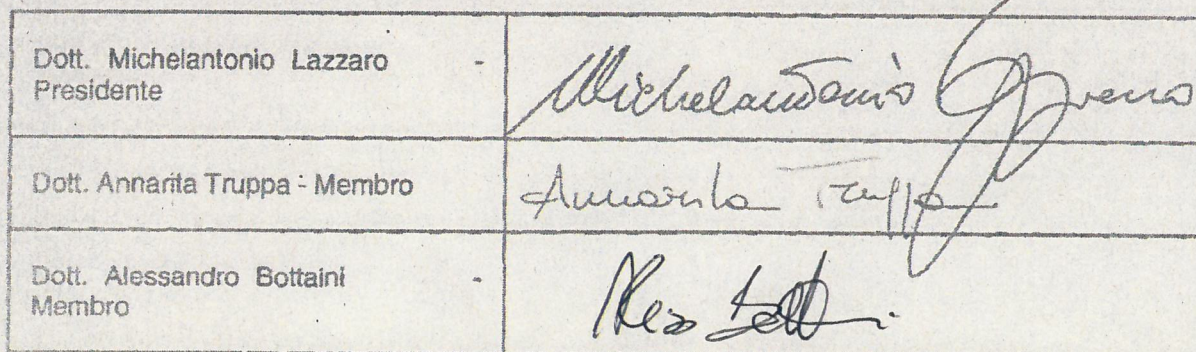 Dott. Michelantonio Lazzaro -
Presidente
Michelantonio
Dott. Annarita Truppa - Membro
Annarita Truppa
Dott. Alessandro Bottaini -
Membro